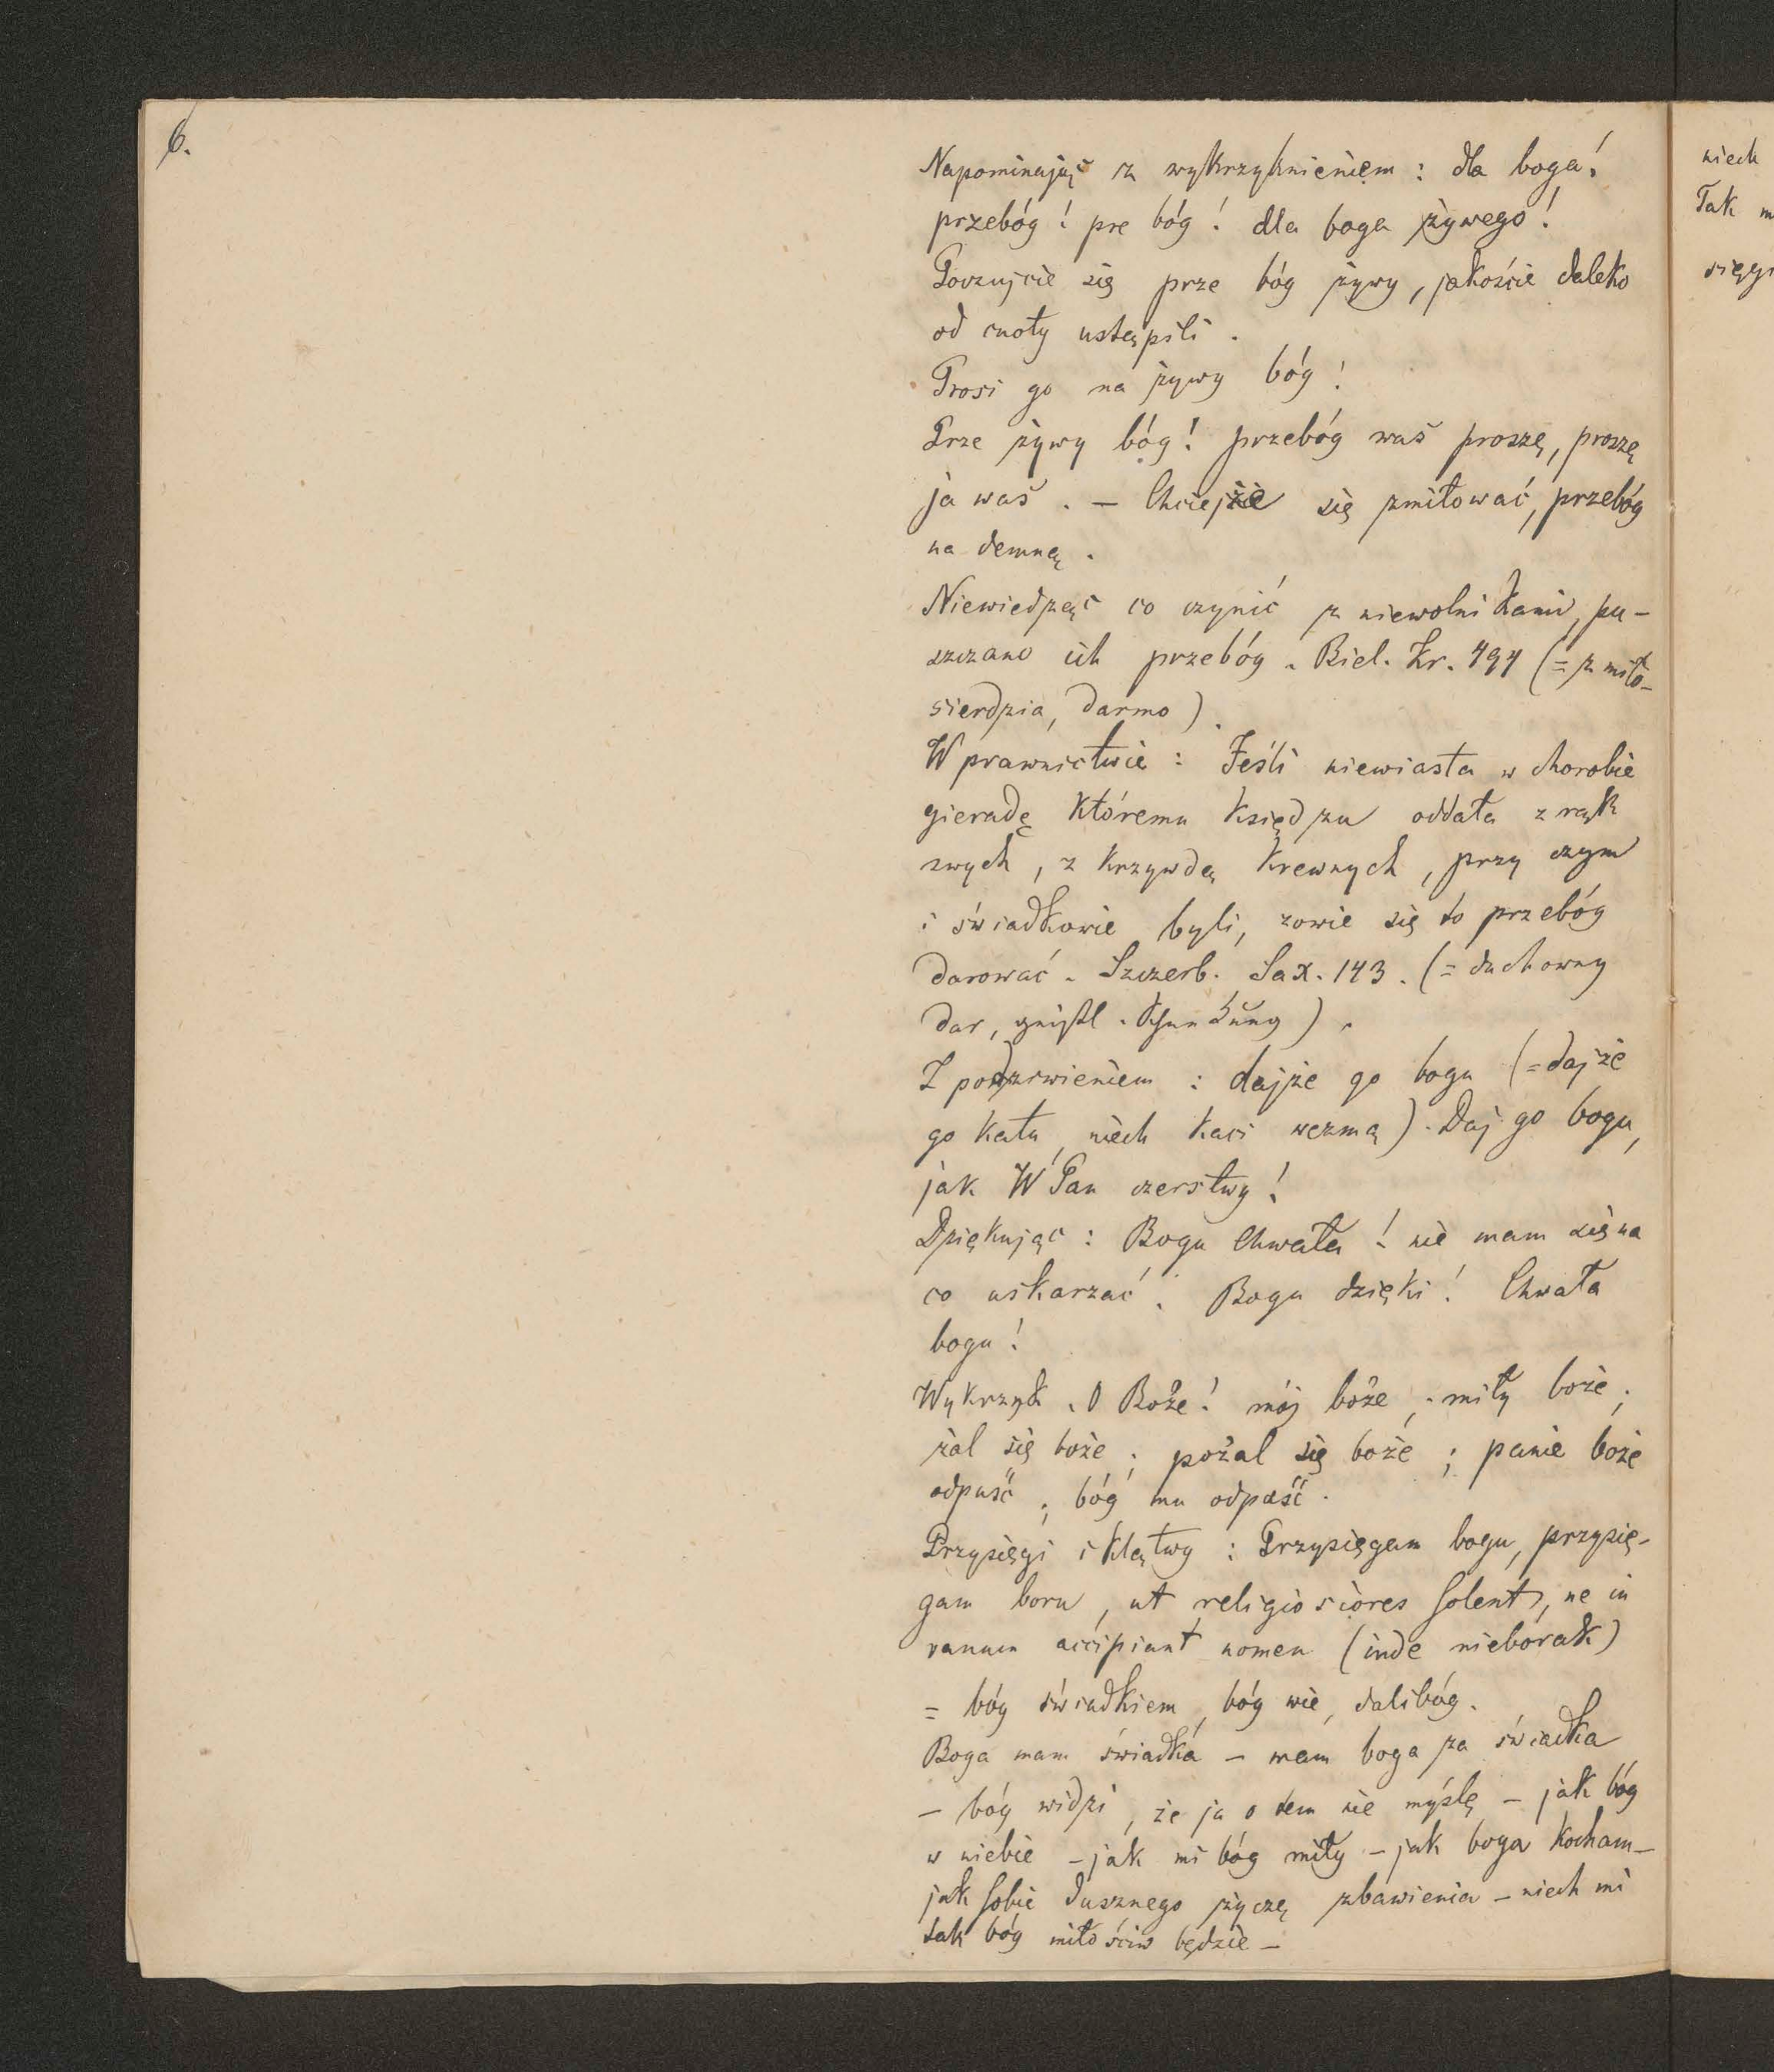 6.
Napominając z wykrzyknieniem: dla boga!
przebóg! pre bóg! dla boga żywego!
Poczujcie się prze bóg żywy, jakoście daleko
od cnoty ustąpili.
Prosi go na żywy bóg!
Prze żywy bóg! przebóg was proszę, proszę
ja was. – Chciejże się zmiłować, przebóg
na demną.
Niewiedząc co czynić z niewolnikami, pu-
szczano ich przebóg. Biel. Kr. 494 (= z miło-
sierdzia, darmo).
W prawnictwie: Jeśli niewiasta w chorobie
gieradę któremu księdzu oddała z rąk
swych, z krzywdą krewnych, przy czym
i świadkowie byli, zowie się to przebóg
darować. Szczerb. Sax. 143. (= duchowny
dar,
Z podziwieniem: dajże go bogu (= dajże
go katu, niech kaci wezmą). Daj go bogu,
jak W Pan czerstwy!
Dziękując: Bogu chwała! nie mam się na
co uskarzać. Bogu dzięki! Chwała
bogu!
Wykrzyk. O Boże! mój boże; miły boże;
żal się boże; pożal się boże; panie boże
odpuść; bóg mu odpuść.
Przysięgi i klątwy: Przysięgam bogu, przysię-
gam boru, ut religiosiores solent, ne in
vanum accipiant nomen (inde nieborak)
= bóg świadkiem, bóg wie, dalibóg.
Boga mam świadka – mam boga za świadka
– bóg widzi, że ja o tem nie myślę – jak bóg
w niebie – jak mi bóg miły – jak boga kocham –
jak sobie dusznego życzę zbawienia – niech mi
tak bóg miłościw będzie –
niech
Tak m
sięgi